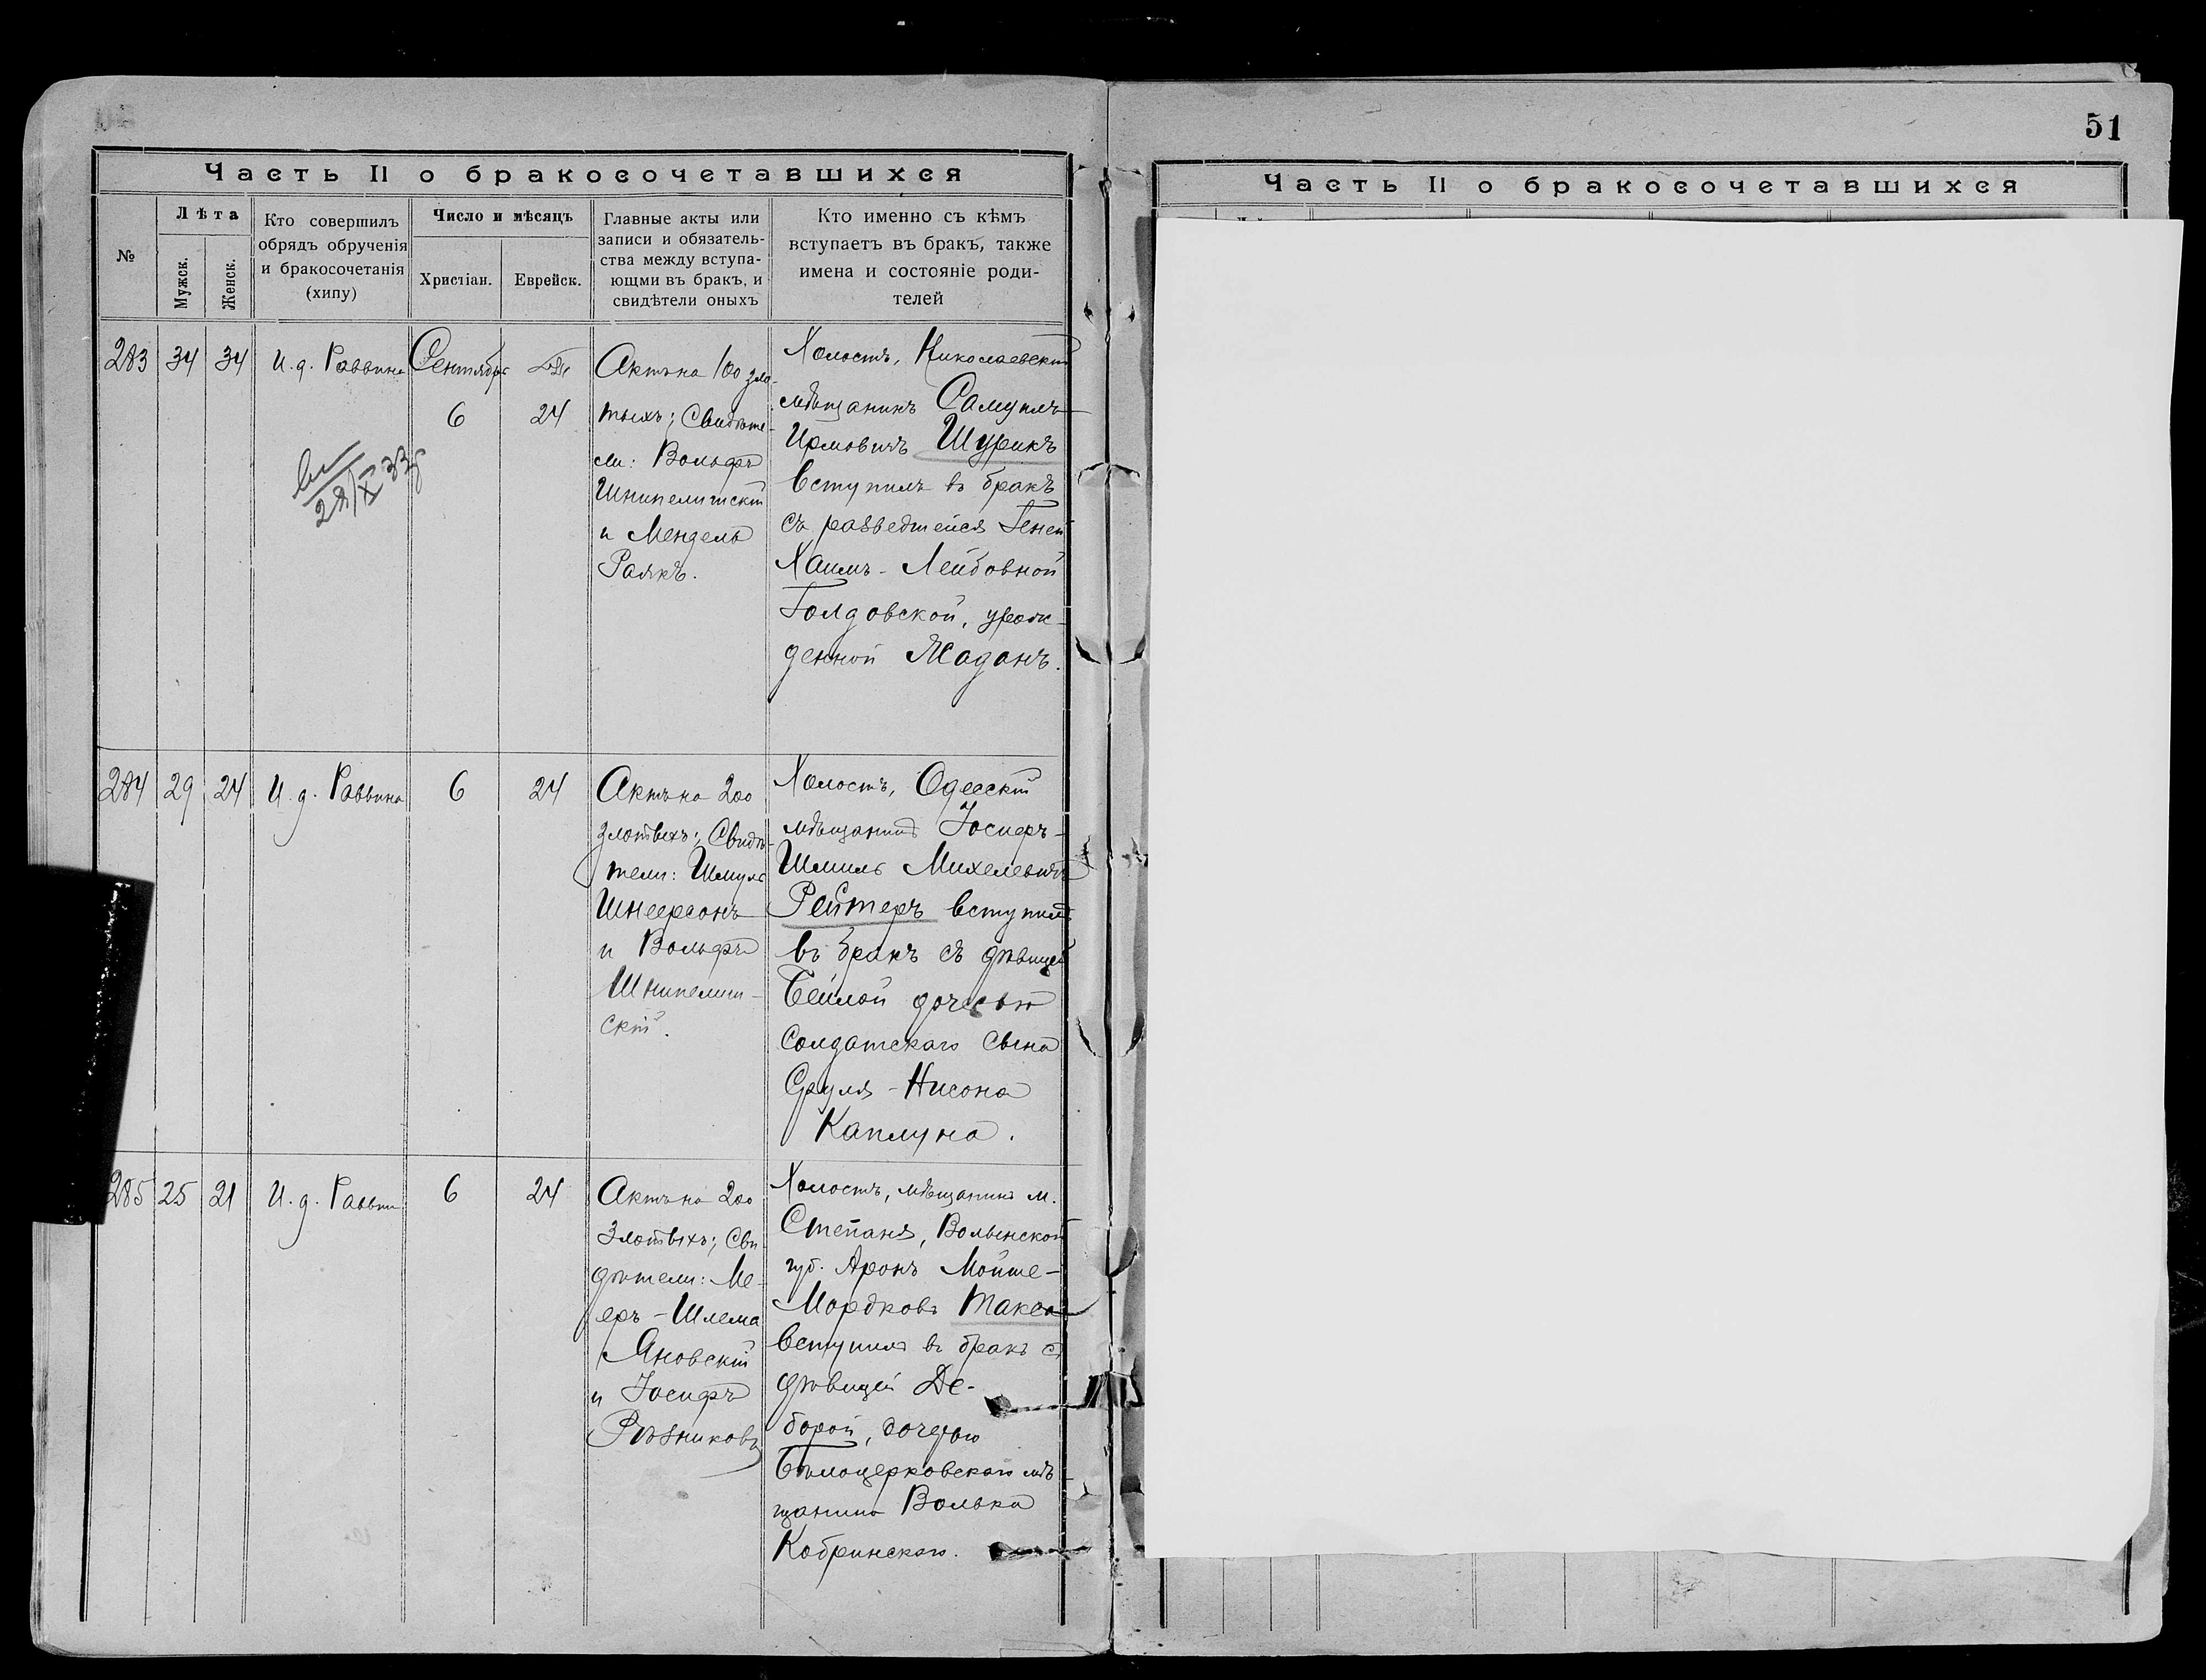 51
Часть II о бракосочетавшихся
№
Лѣта
Мужск.
Женск.
Кто совершилъ
обрядъ обрученія
и бракосочетанія
(хипу)
Число и мѣсяцъ
Христіан.
Еврейск.
Главные акты или
записи и обязатель-
ства между вступа-
ющми въ бракъ, и
свидѣтели оныхъ
Кто именно съ кѣмъ
вступаетъ въ бракъ, также
имена и состояніе роди-
телей
283
34
34
И. д. Раввина
Сентябрь
6
24
Актъ на 100 зло-
тыхъ; Свидѣте-
ли: Вольфъ
Шнипелишскій
и Мендель
Раякъ.
Холостъ, Николаевскій
мѣщанинъ Самуилъ
Ирмовичъ Шурикъ
вступилъ въ бракъ
съ разведшейся Геней
Хаимъ-Лейбовной
Голдовской, урож-
денной Жаданъ.
284
29
24
И. д. Раввина
6
24
Актъ на 200
злотыхъ; Свидѣ-
тели: Шмуль
Шнеерсонъ
и Вольфъ
Шнипелиш-
скій.
Холостъ, Одесскій
мѣщанинъ Іосифъ-
Шмиль Михелевичъ
Рейтеръ вступилъ
въ бракъ съ дѣвицей
Бейлой дочерью
солдатскаго сына
Сруля-Нисона
Каплуна.
285
25
21
И. д. Раввин
6
24
Актъ на 200
Злотыхъ; Сви-
дѣтели: Ме-
еръ-Шлема
Яновскій
и Іосифъ
Рѣзниковъ
Холостъ, мѣщанинъ м.
Степаня, Волынской
губ. Аронъ Мойше-
Мордковъ Такса
вступилъ въ бракъ съ
дѣвицей Де-
борой, дочерью
Бѣлоцерковскаго мѣ-
щанина Волька
Кобринскаго.
Часть II о бракосочетавшихся